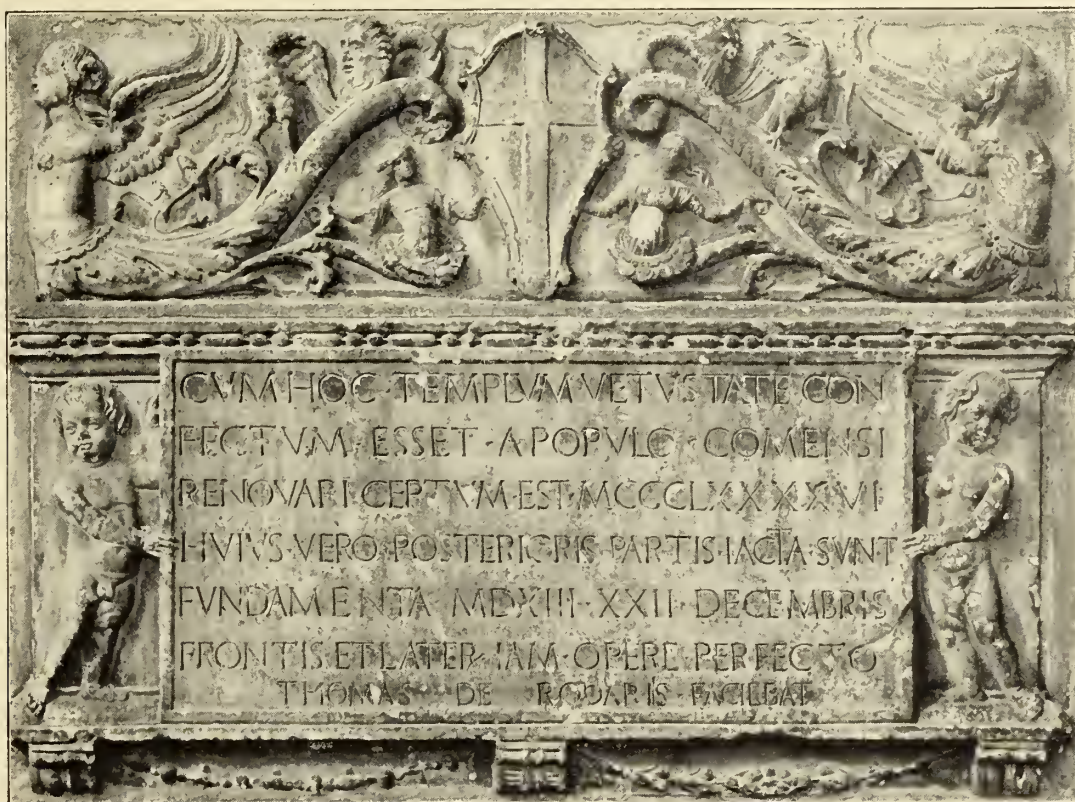 CVM HOC TEMPLVM VETVSTATE CON
FECTVM · ESSET · A POPVLO · COMENSI
RENOVARI CEPTVM · EST · MCCCLXXXXVI
HVIVS · VERO · POSTERIORIS · PARTIS · IACTA · SVNT
FVNDAMENTA · MDXIII · XXII · DECEMBRIS
FRONTIS · ET LATER · IAM · OPERE · PERFECTO
THOMAS DE RODARIS FACIEBAT